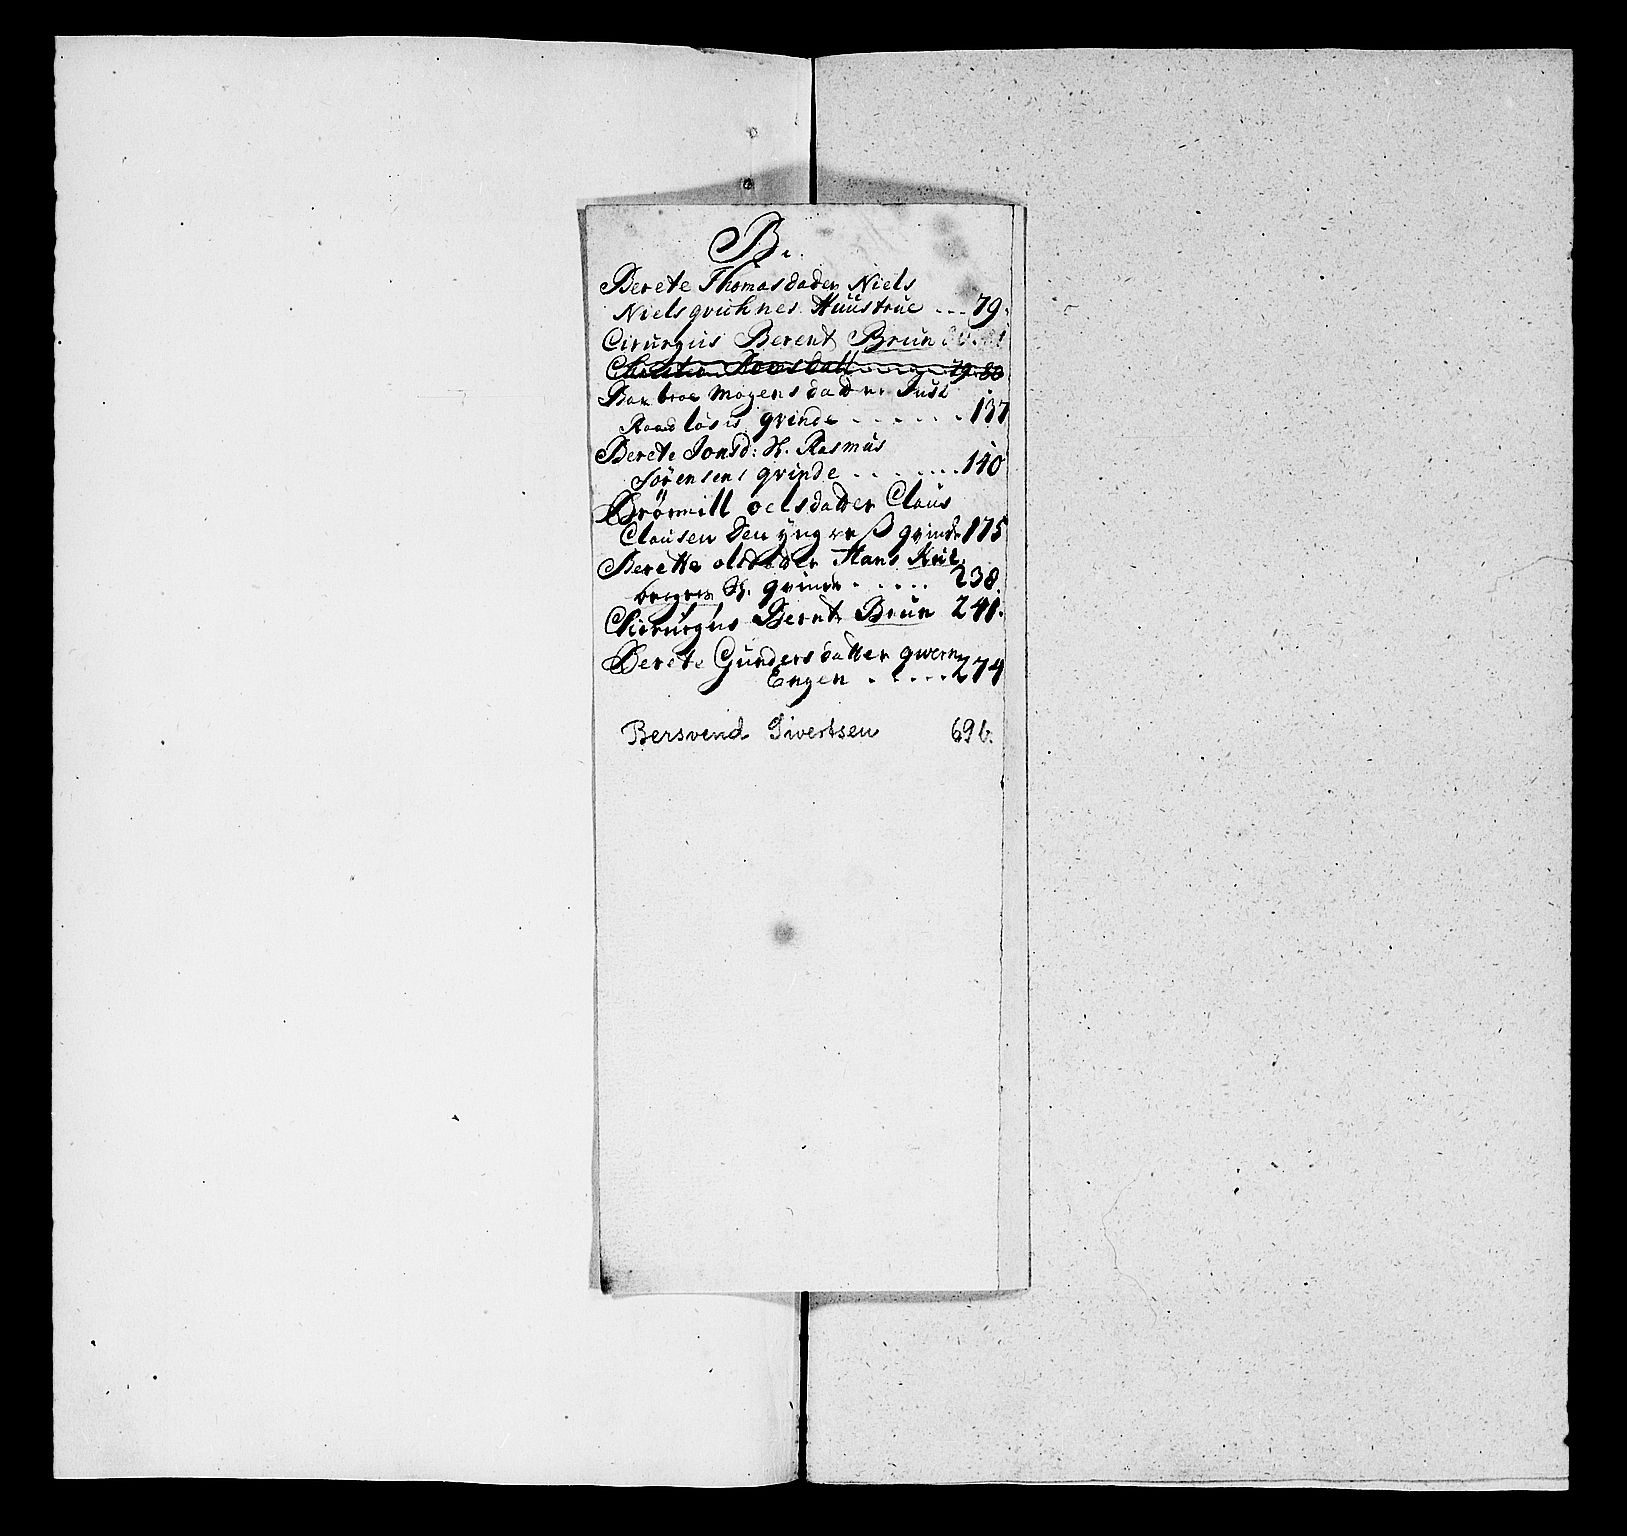 B.
Berete Thomasdader Niels
Nielsgvichnes Huustrue ... 79.
Cirurgus Berent Brun 80. 81
Christen 79. 80
Barbroe Mogensdader Just
gvinde . . . . . . 137
Berete Jonsd: H. Rasmus
Sørensens gvinde . . . . . . . 140
Brønnill oelsdatter Claus
Clausen den yngreß gvinde 175
Berette olsdader Hans Kiel
bergren H. gvinde . . . . . 238.
Chirurgus Bernt Brun 241.
Berete Gundersdatter qwern
Engen . . . . . 274
Bersvend Sivertsen 696.